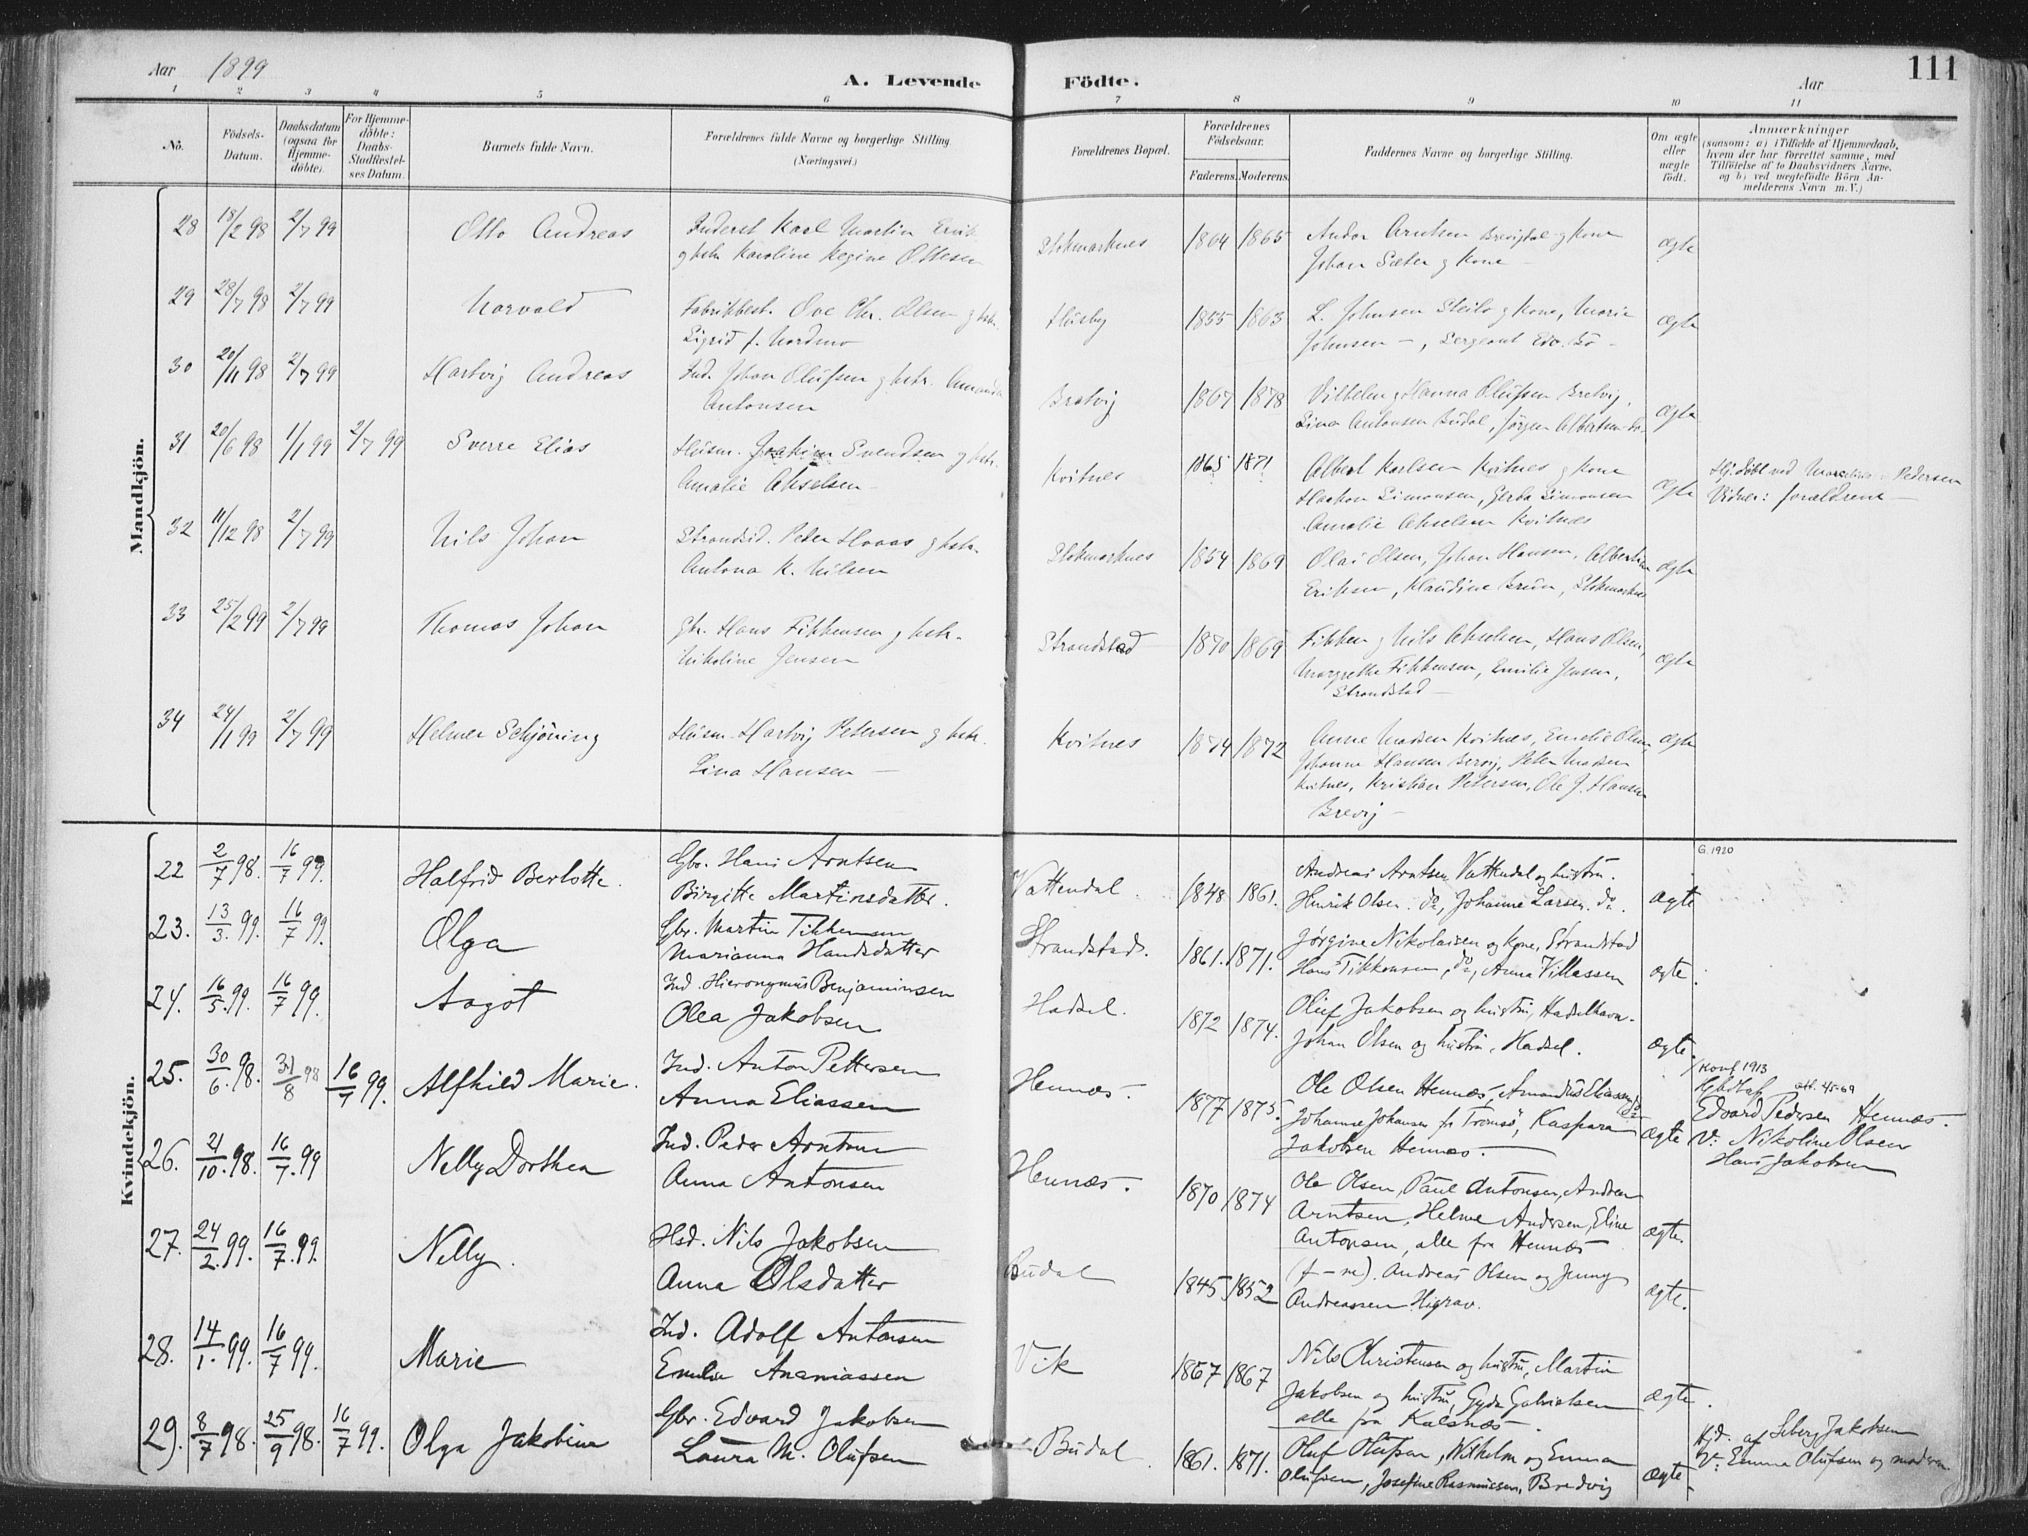 Aar 1899
A. Levende Födte.
Aar
111
1 2 3 4 5 6 7 8 9 10 11
No.
Födsels-Datum.
Daabsdatum (ogsaa for Hjemme-döbte).
For Hjemme-döbte: Daabs-Stadfæstel-ses Datum.
Barnets fulde Navn.
Forældrenes fulde Navne og borgerlige Stilling (Næringsvei.)
Forældrenes Bopæl.
Forældrenes Födselsaar.
Faderens. Moderens.
Faddernes Navne og borgerlige Stilling.
Om ægte eller uægte födt.
Anmærkninger
(saasom: a) i Tilfælde af Hjemmedaab,
hvem der har forrettet samme, med
Tilföielse af to Daabsvidners Navne,
og b) ved uægtefödte Börn An-
melderens Navn m. V.)
Mandkjön.
28 18/2 98 2/7 99 Otto Andreas
Inderst Karl Martin
g hstr. Karoline Regine Ottesen
Stokmarknes 1864 1865
Andor Arntsen g Kone
Johan Sæter g Kone
ægte
29 28/7 98 2/7 99 Norvald
Fabrikbest. Ove Chr. Olsen g hstr.
Sigrid f. Nordmo
Husby 1855 1863
L. Johnsen Steilo g Kone, Marie
Johnsen –, Sergeant Edv. Bö –
ægte
30 20/11 98 2/7 99 Hartvig Andreas
Ind. Johan Olufsen g hstr. Amanda
Antonsen
Bretvig 1867 1878
Vilhelm g Hanna Olufsen Bretvig,
Lina Antonsen Budal, Jörgen Albertsen
ægte
31 20/6 98 1/1 99 2/7 99 Sverre Elias
Husm. Joakim Svendsen g hstr.
Amalie Akselsen
Kvitnes 1865 1871
Albert Karlsen Kvitnes g Kone
Haakon Simonsen, Gerda Simonsen
Amalie Akselsen Kvitnes
ægte
Hj. döbt ved Pedersen
Vidner: forældrene –
32 11/12 98 2/7 99 Nils Johan
Strandsid. Peter Haaas g hstr.
Antona K. Nilsen
Stokmarknes 1854 1869
Olai Olsen, Johan Hansen, Albertine
Eriksen, Klaudine Brun, Stokmarknes
ægte
33 25/2 99 2/7 99 Thomas Johan
Gbr. Hans Tikkensen g hstr.
Nikoline Jensen
Strandstad 1870 1869
Tikken g Nils Akselsen, Hans Olsen,
Margrethe Tikkensen, Emilie Jensen,
Strandstad –
ægte
34 24/1 99 2/7 99 Helmer Schjöning
Husm. Hartvig Petersen g hstr.
Lina Hansen –
Kvitnes 1874 1872
Anne Madsen Kvitnes, Emelie Olsen,
Johanne Hansen Brevig, Peter Madsen
Kvitnes, Kristian Petersen, Ole J. Hansen
Brevig –
ægte
Kvindekjön.
22 2/7 98. 16/7 99. Halfrid Berlotte.
Gbr. Hans Arntsen
Birgitte Martinsdatter.
Vattendal. 1848 1861.
Andreas Arntsen Vattendal og hustru.
Henrik Olsen do, Johanne Larsen. do.
ægte
G. 1920
23. 13/3. 99. 16/7 99. Olga
Gbr. Martin Tikkensen
Marianna Handsdatter
Strandstad. 1861. 1871.
Jørgine Nikolaisen og Kone, Strandstad
Hans Tikkensen, do, Anna Villassen
ægte.
24. 16/5. 99. 16/7 99. Aagot
Ind. Hieronymus Benjaminsen
Olea Jakobsen
Hadsel. 1872 1874.
Oluf Jakobsen og hustru, Hadselhavn.
Johan Olsen og hustru, Hadsel.
ægte.
25. 30/6. 98. 31/8 98 16/7 99. Alfhild Marie.
Ind. Anton Pettersen
Anna Eliassen
Hennæs. 1877 1875.
Ole Olsen Hennæs, Amandus Eliassen do
Johanne Johansen fr Tromsö, Kaspara
Jakobsen Hennæs.
ægte
Konf 1913
att. 45-69
Edvard Pedersen Hennæs.
V: Nikoline Olsen
Hans Jakobsen
26. 21/10. 98. 16/7. 99 Nelly Dorthea
Ind. Peder Arntsen
Anna Antonsen
Hennæs. 1870 1874
Ole Olsen, Paul Antonsen, Andrea
Arntsen, Helme Andersen, Eline
Antonsen, alle fra Hennæs
ægte.
27. 24/2. 99. 16/7. 99. Nelly.
Hsd. Nils Jakobsen
Anna Olsdatter
Budal 1845 1852
(f–m). Andreas Olsen og Jenny
Andreassen Higrav.
ægte.
28. 14/1. 99. 16/7 99. Marie
Ind. Adolf Antonsen
Emilie Ananiassen
Vik 1857 1867
Nils Christensen og hustru, Martin
Jakobsen og hustru, Gyda Gabrielsen
alle fra Kalsnæs.
ægte.
29. 8/7 98. 25/9 98. 16/7 99. Olga Jakobine
Gbr. Edvard Jakobsen
Laura M. Olufsen
Budal. 1861. 1871.
Oluf Olufsen, Wilhelm og Emma
Olufsen, Josefine Rasmussen, Bredvig
ægte.
Hjd. af Seberg Jakobsen
V: Emma Olufsen og moderen